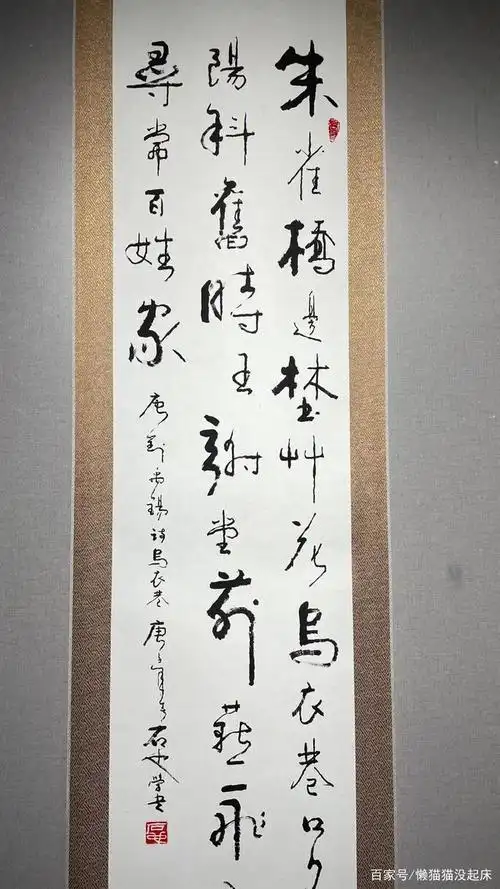 朱雀橋邊埜艸花烏衣巷口夕
陽斜舊時王謝堂前燕飛
尋常百姓家
唐劉禹錫詩烏衣巷
百家号/懒猫猫没起床